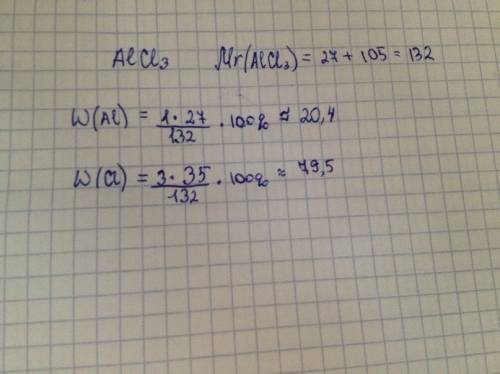 AlCl₃ Mr(AlCl₃) = 27 + 105 = 132
W(Al) = 1·27/132 · 100% ≈ 20,4
W(Cl) = 3·35/132 · 100% ≈ 79,5